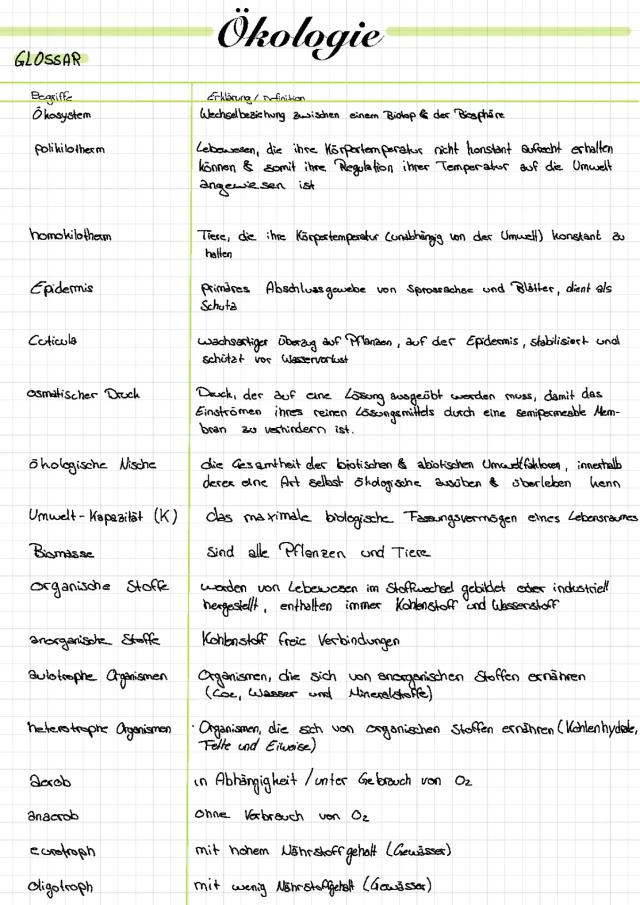 Ökologie
GLOSSAR
Begriffe Erklärung / Definition
Ökosystem Wechselbeziehung zwischen einem Biotop & der Biosphäre
polikilotherm Lebewesen, die ihre Körpertemperatur nicht konstant aufrecht erhalten
können & somit ihre Regulation ihrer Temperatur auf die Umwelt
angewiesen ist
homokilotherm Tiere, die ihre Körpertemperatur (unabhängig von der Umwelt) konstant zu
halten
Epidermis primäres Abschlussgewebe von Sprossachse und Blätter, dient als
Schutz
Cuticula wachsartiger Überzug auf Pflanzen, auf der Epidermis, stabilisiert und
schützt vor Wasserverlust
osmatischer Druck Druck, der auf eine Lösung ausgeübt werden muss, damit das
Einströmen ihres reinen Lösungsmittels durch eine semipermeable Mem-
bran zu verhindern ist.
ökologische Nische die Gesamtheit der biotischen & abiotischen Umweltfaktoren, innerhalb
derer eine Art selbst ökologische ausüben & überleben kann
Umwelt-Kapazität (K) das maximale biologische Fassungsvermögen eines Lebensraumes
Biomasse sind alle Pflanzen und Tiere
organische Stoffe werden von Lebewesen im Stoffwechsel gebildet oder industriell
hergestellt, enthalten immer Kohlenstoff und Wasserstoff
anorganische Stoffe Kohlenstoff freie Verbindungen
autotrophe Organismen Organismen, die sich von anorganischen Stoffen ernähren
(CO2, Wasser und Mineralstoffe)
heterotrophe Organismen · Organismen, die sich von organischen Stoffen ernähren (Kohlenhydrate,
Fette und Eiweise)
aerob in Abhängigkeit / unter Gebrauch von O2
anaerob ohne Verbrauch von O2
eurotroph mit hohem Nährstoffgehalt (Gewässer)
oligotroph mit wenig Nährstoffgehalt (Gewässer)